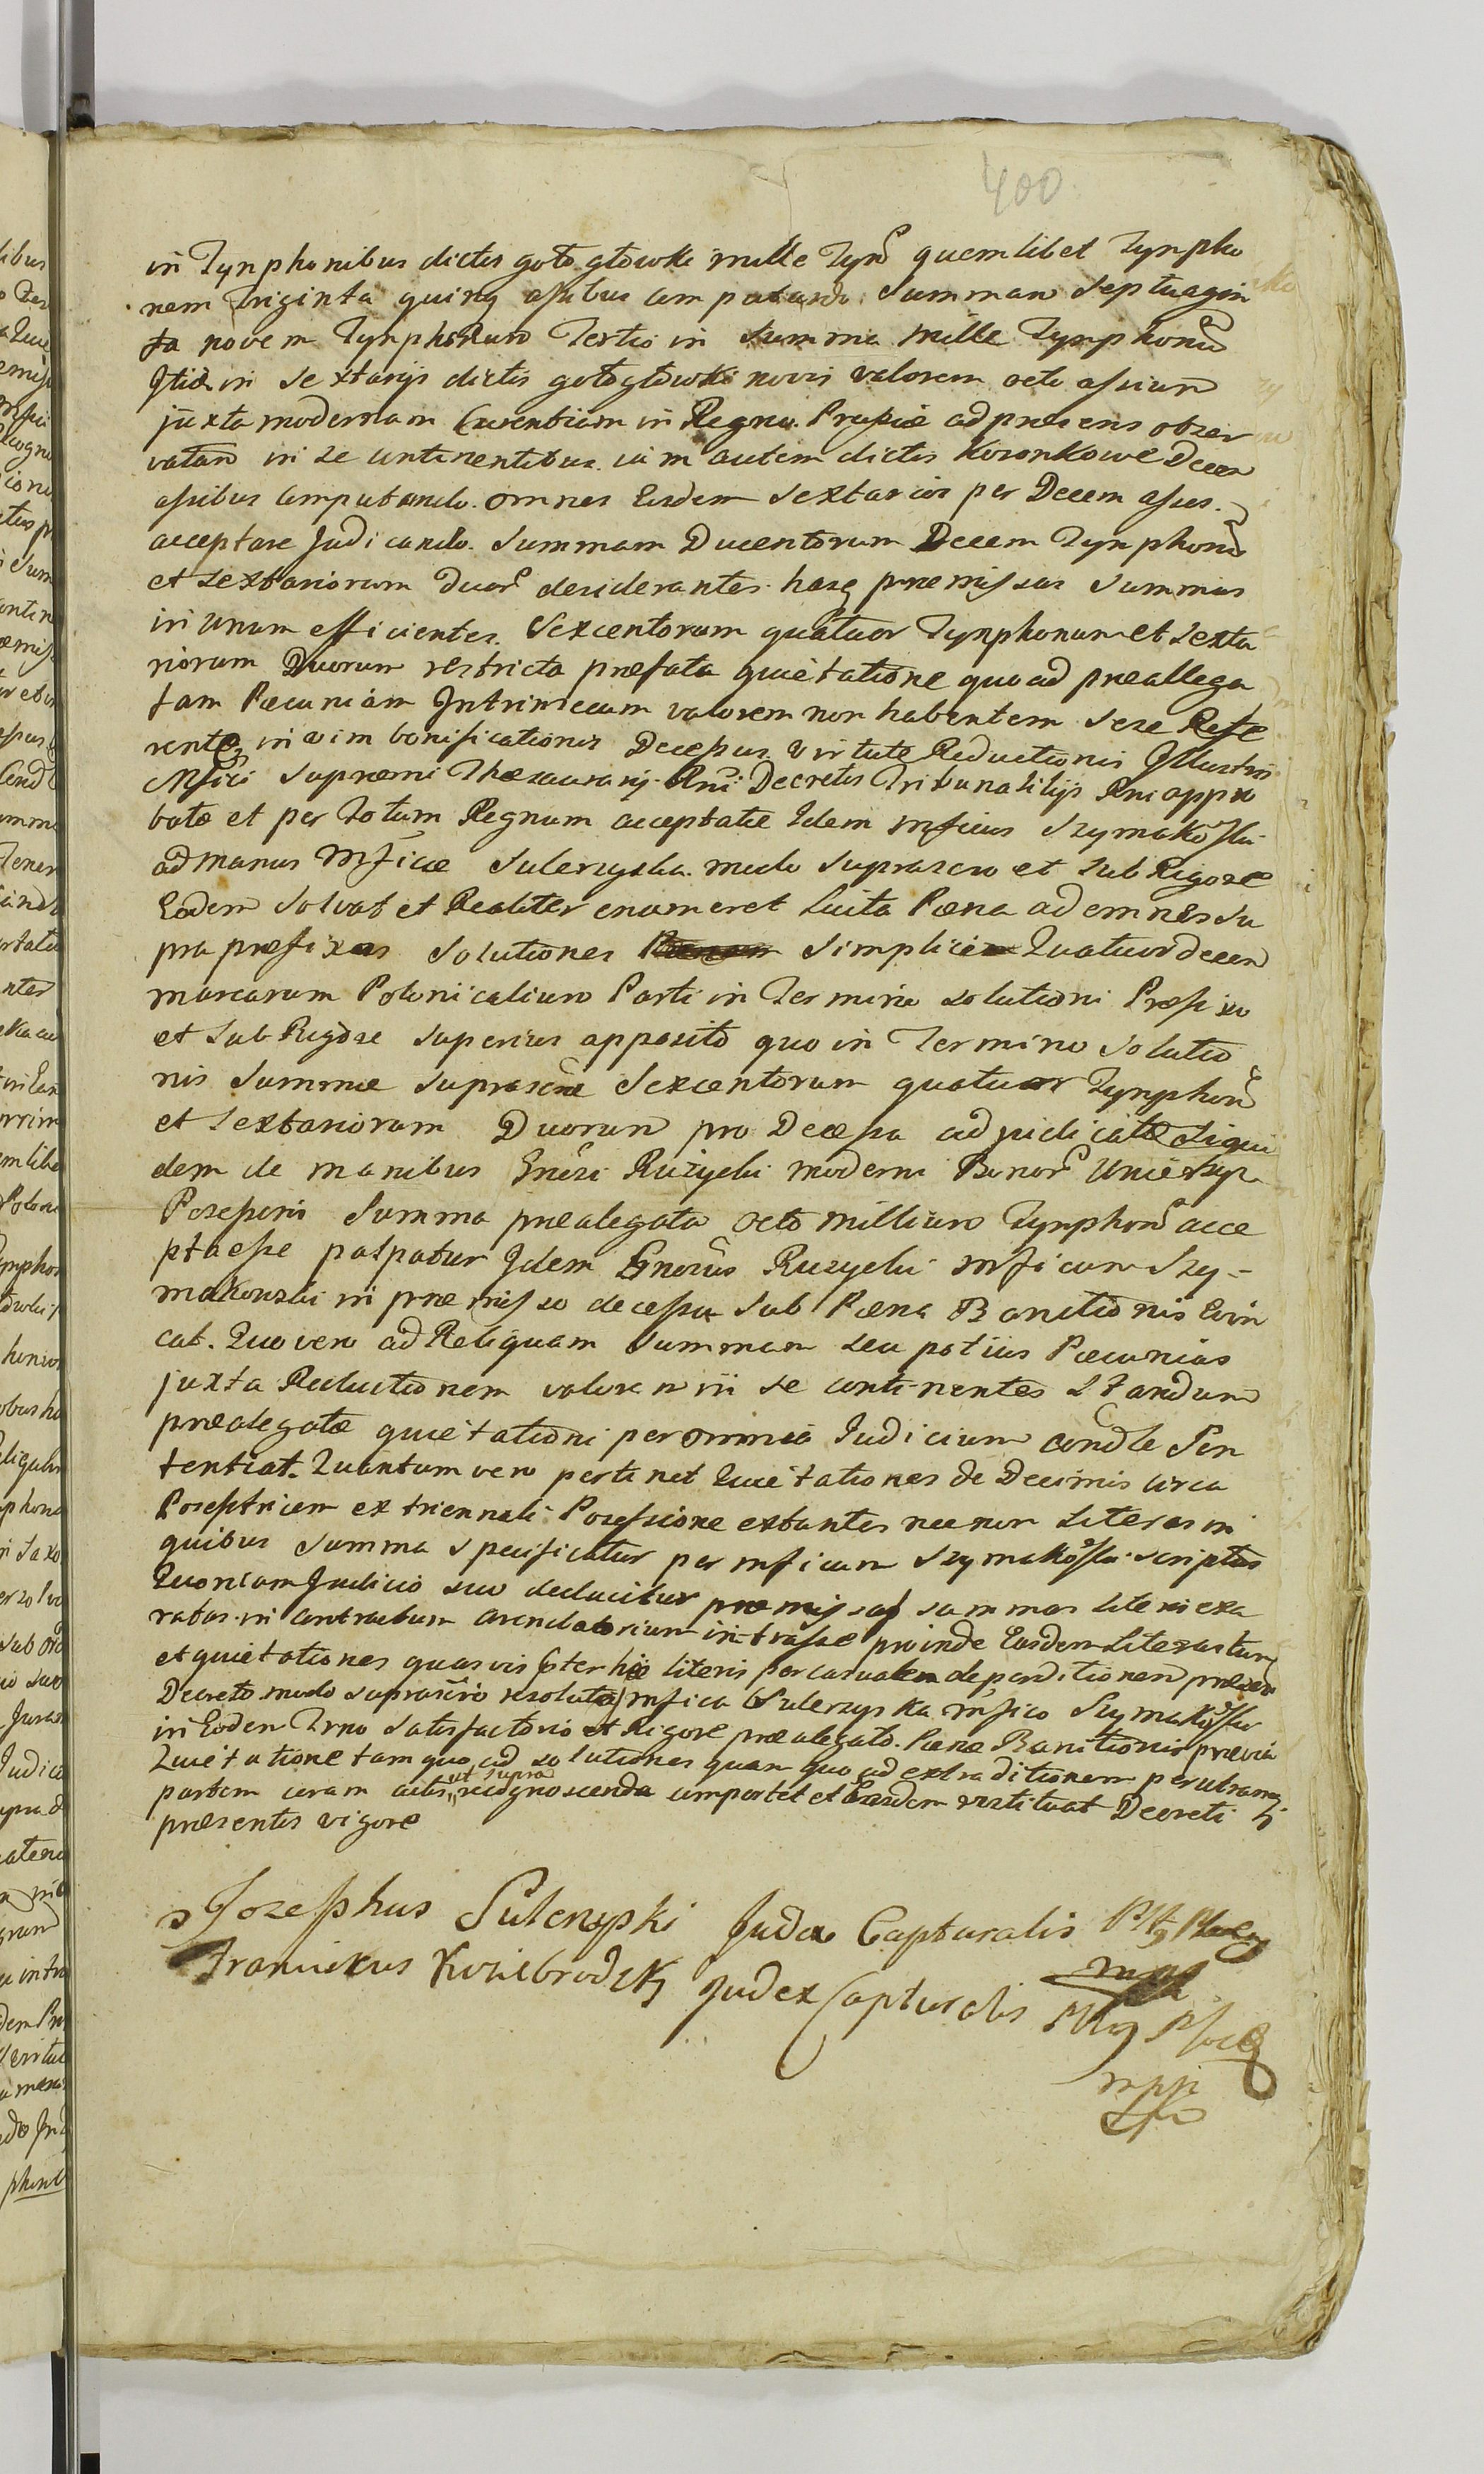 400
in Tynphonibus dictis gołogłowki mille Tyno quemlibet Tynpho
nem Triginta quinq assibus computando Summam Septuagin
ta novem Tynphorum Tertio in Summa mille Tynphonu
Itid in Sextarijs dictis gołogłowki novis valorem octo assium
juxta modernam Curentiam in Regno Prussiæ ad præsens obser
vatam in se continentibus jam autem dictis Koronkowe Decem
assibus computando omnes Eosdem Sextarios per Decem asses
acceptare Judicando. Summam Ducentorum Decem Tynphonu
et Sextariorum duor desiderantes hasq præmissas Summas
in unum efficientes Sexcentorum quatuor Tynphonum et Sexta
riorum Duorum restricta præfata quietatione quoad præallega
tam Pæcuniam Intrinsecum valorem non habentem Sese Refe
rente, in vim bonificationis Decessus virtute Reductionis Illustris
Mfici Supremi Thesaurarij Rni Decretis Tribunalitijs Rni appro
batæ et per Totum Regnum acceptatæ Idem Mficus Szymakoski
ad manus Mficæ Sulerzyska modo suprascro et sub Rigore
Eodem Solvat et Realiter enumeret Luita Pæna ad omnes su
pra præfixas Solutiones simplici Quatuordecem
marcarum Polonicalium Parti in Termino solutioni Præfixo
et sub Rigore superius apposito quo in Termino Solutio
nis Summæ suprascræ Sexcentorum quatuor Tynphonu
et Sextariorum Duorum pro Decessu adjudicatæ Siqui
dem de manibus Gnosi Rużycki moderni Bonor Unierzyz
Possessoris Summa præalegata octo millium Tynphonu acce
pta esse palpatur Idem Gnosus Ruzycki Mficum Szy-
makowski in præmisso decessu sub Pæna Banitionis Evin
cat. Quo vero ad Reliquam Summam seu potius Pæcunias
juxta Reductionem valorem in se continentes Standum
præalegatæ quietationi per omnia Judicium condle Sen
tentiat. Quantum vero pertinet Quietationes de Decimis circa
Possestricem ex triennali Possessione extantes necnon Literas in
quibus Summa specificatur per Mficum Szymakoski scriptas
Quoniam Judicio suo deducitur præmissas summas literis exa
ratas in contractum arendatorium intrasse proinde Easdem Literas tum
et quietationes quasvis
Decreto modo suprascrio resolutas Mfica Sulerzyska Mfico Szymakosku
in Eodem Trno Satisfactorio et Rigore præalegato Pænæ Banitionis prævia
Quietatione tam quoad solutiones quam quoad extraditionem per utramq
partem coram actis ut supra recognoscenda comportet et Easdem restituat Decreti
præsentis vigore
Josephus Sulerzyski Judex Capturalis
Franciskus Koziebrodzki Judex Capturalis
mpp